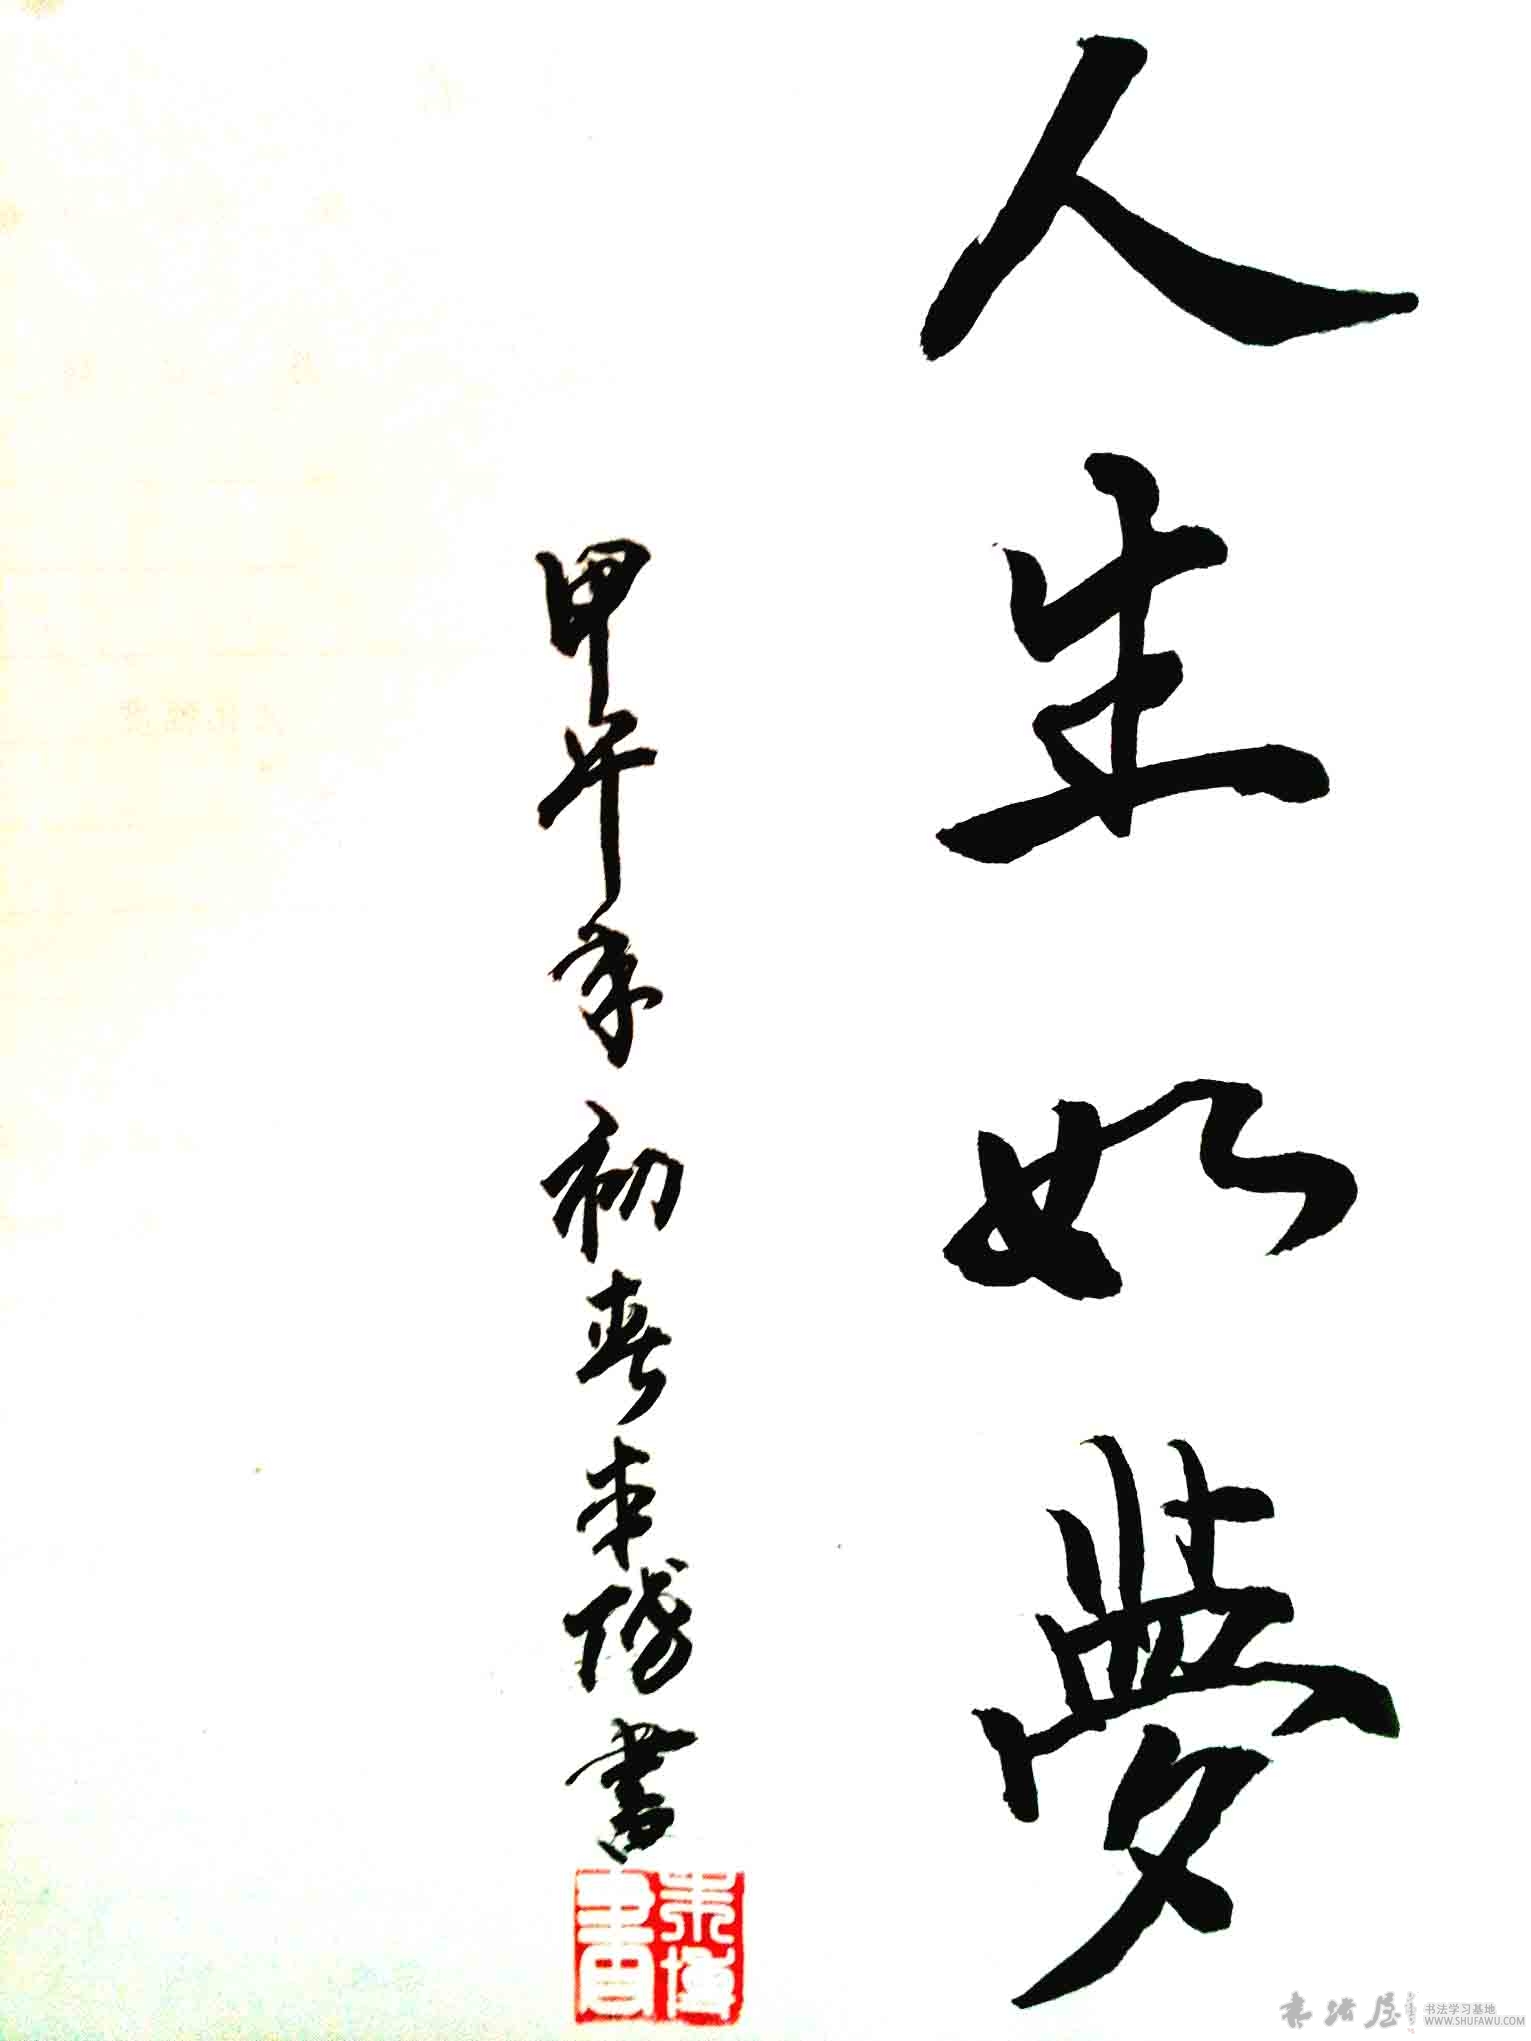 人生如夢
甲午年初春
書
書法屋
书法学习基地
WWW.SHUFAWU.COM